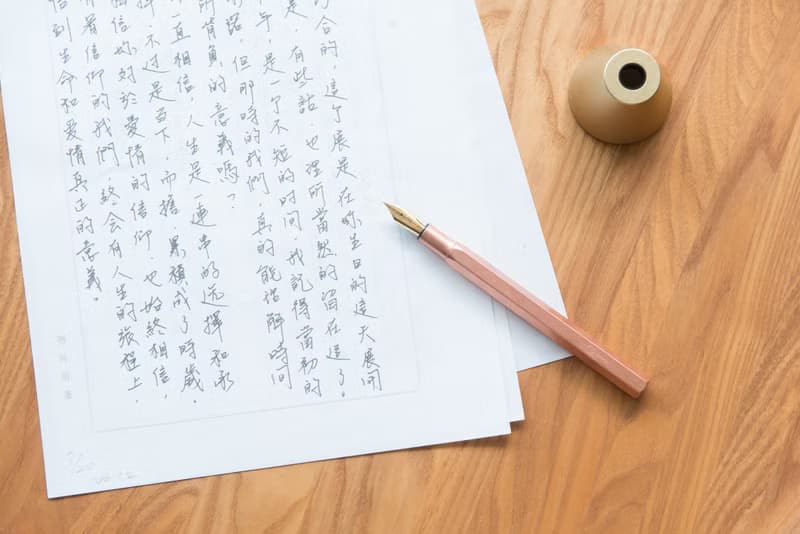 合的,這个展是在你生日的這天展開
是,有些話,也理所當然的留在這了。
年,是一个不短的时间,我記得當初的
諾,但那時的我們,真的能解時間
所背負的意義嗎?
一直相信,人生是一連串的选擇和承
不過是當下,而擔,累積成了時歲,
相信妳對於愛情的信仰,也始終相信,
著信仰的我們,終会有人生的旅程上,
到生命和愛情真正的意義。